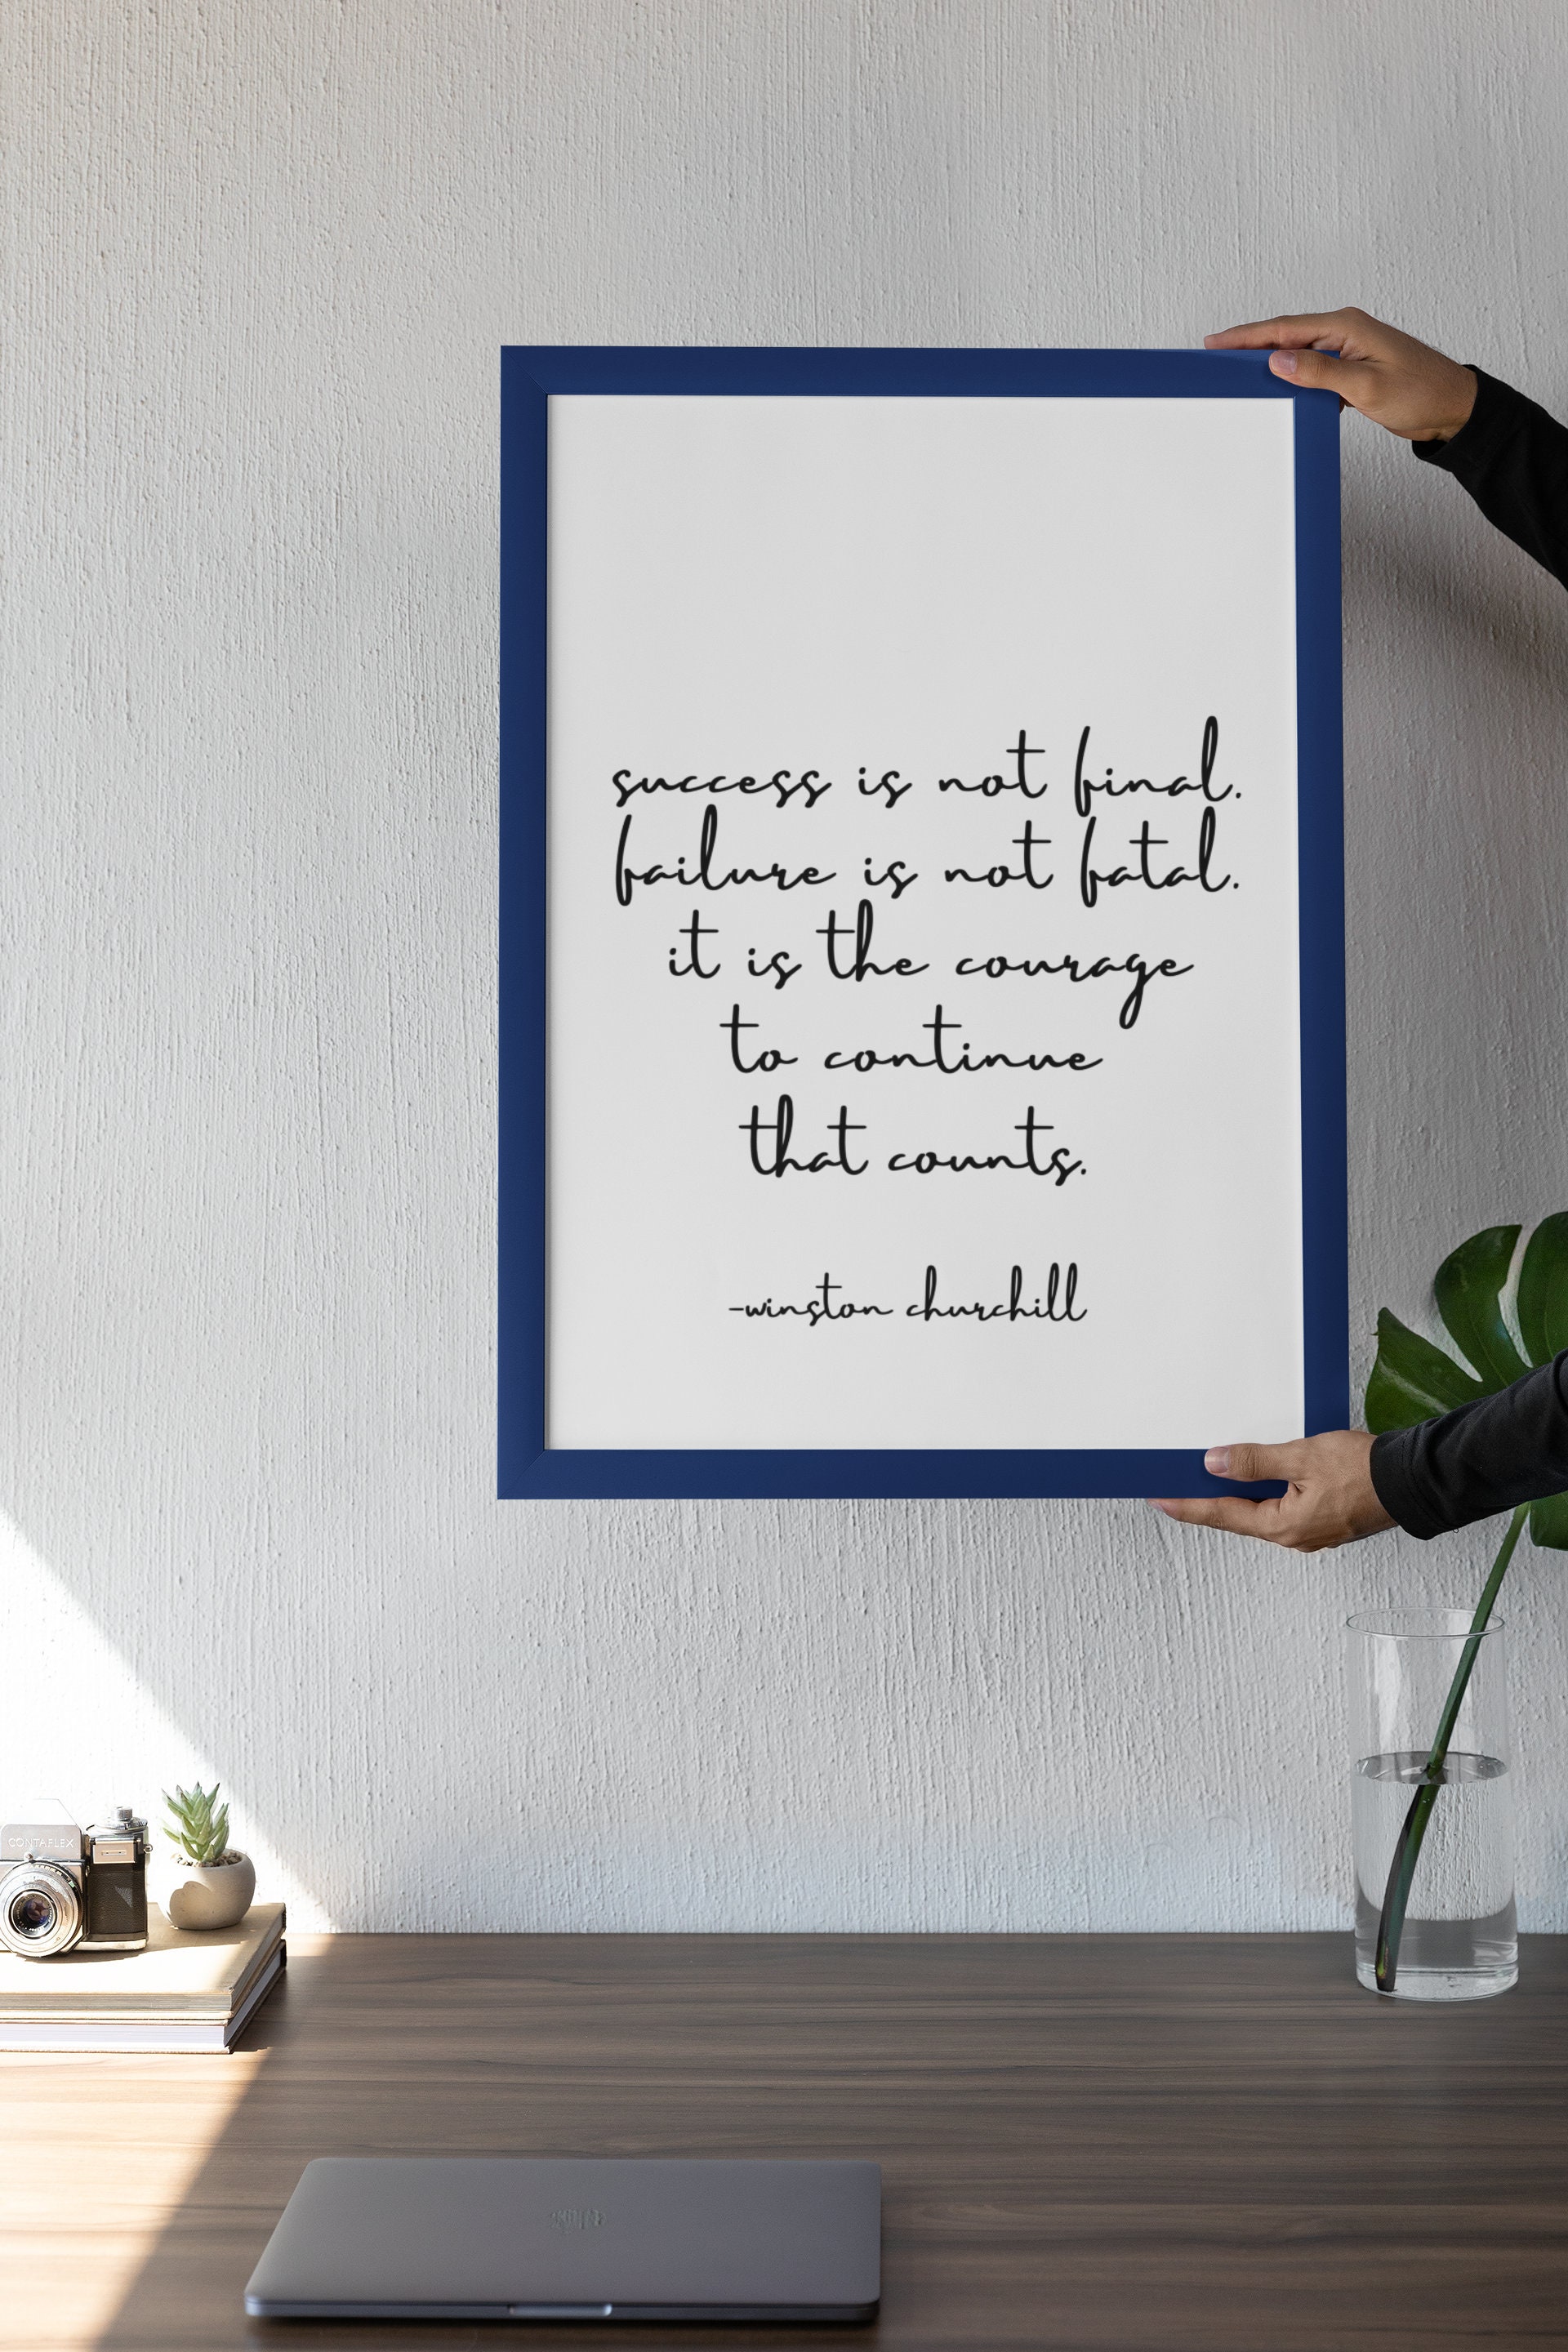 success is not final.
failure is not fatal.
it is the courage
to continue
that counts.
-winston churchill
CONTAFLEX